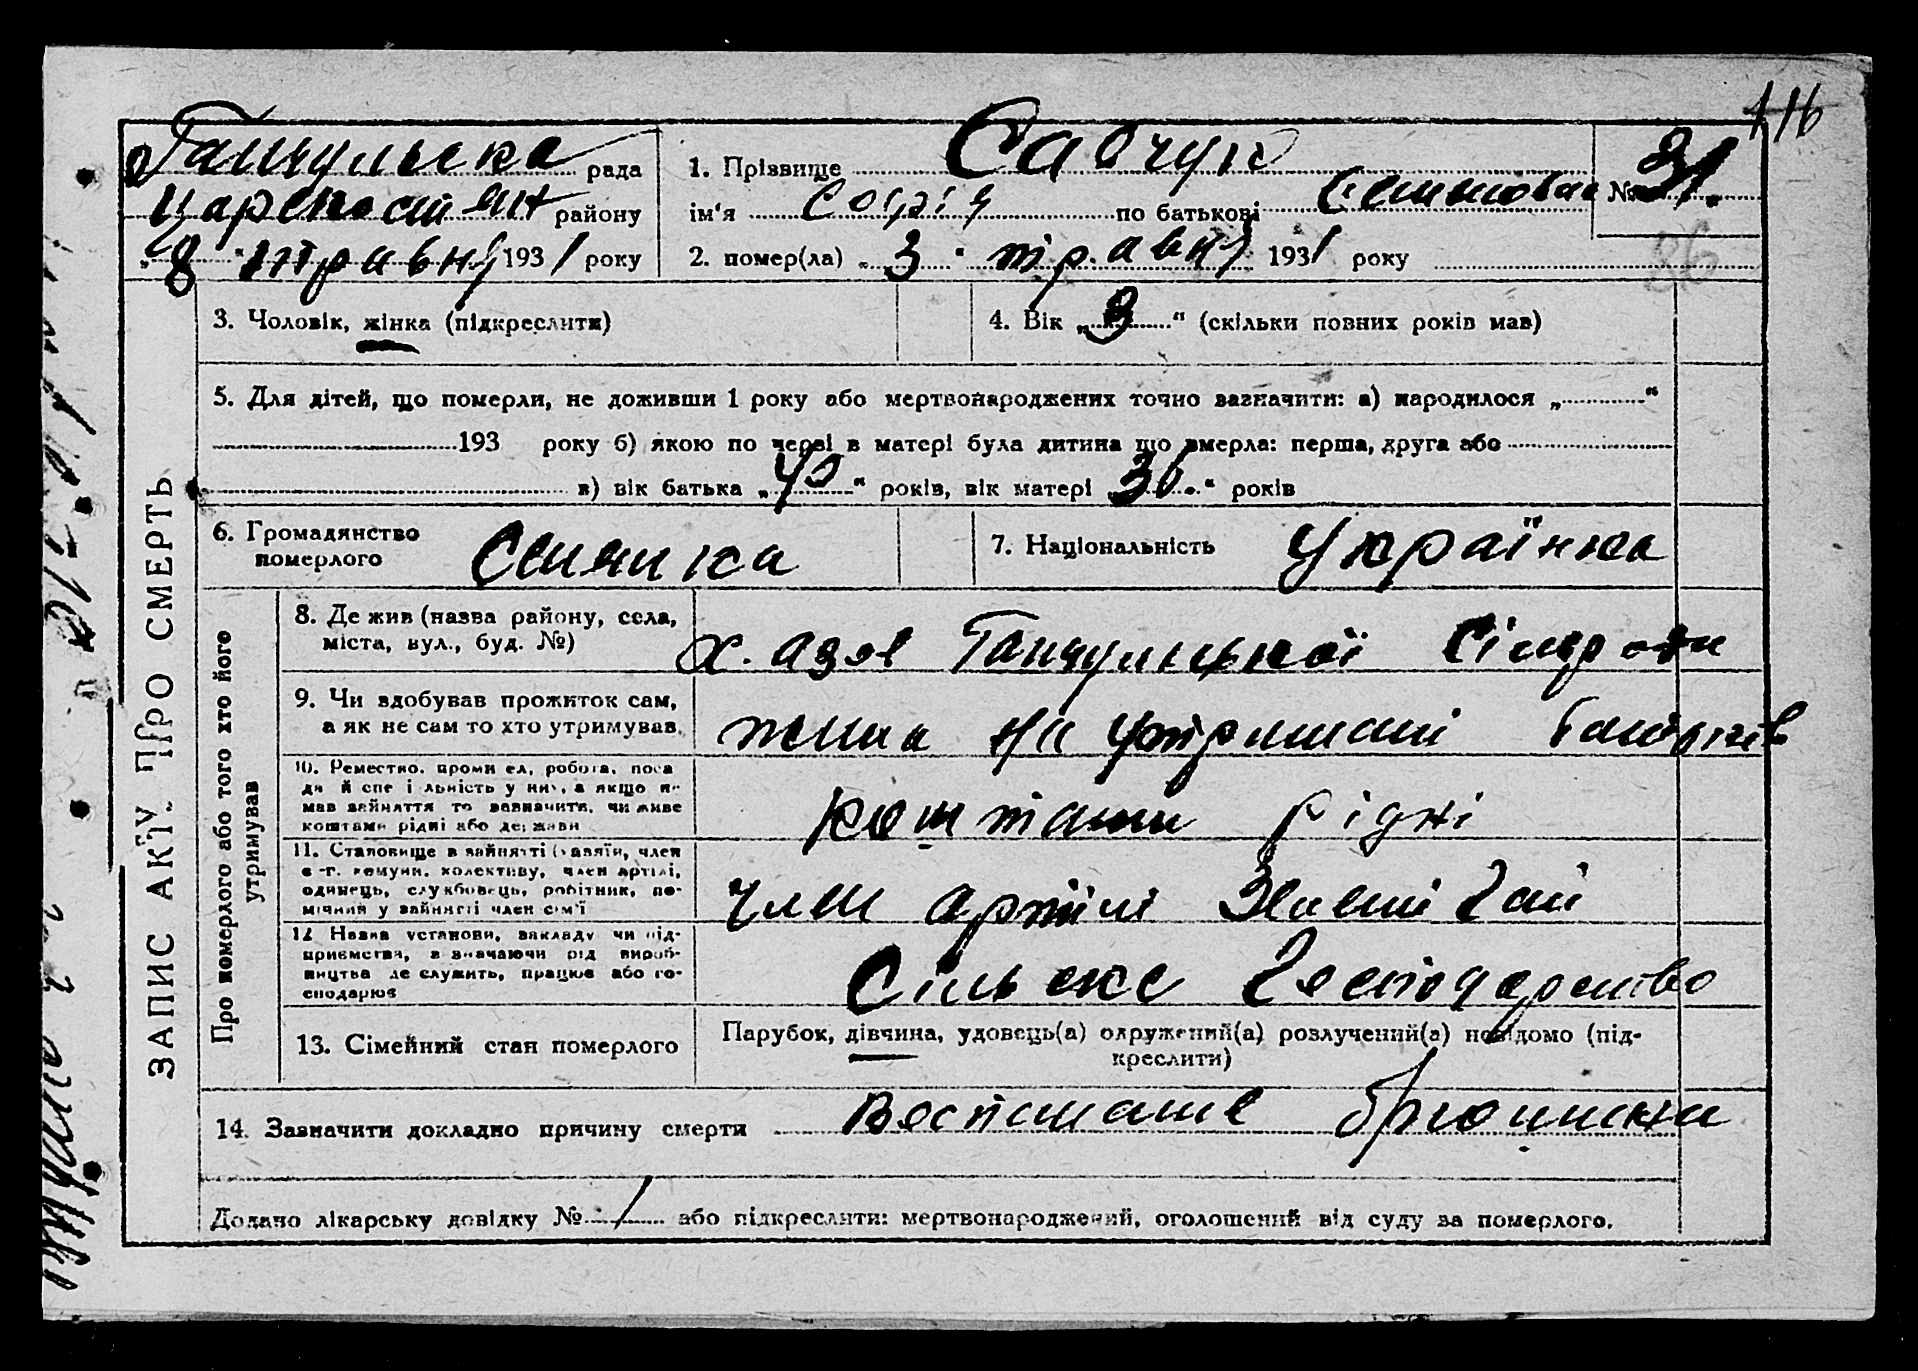 116
Ганчульська рада
району
„8“ травня 1931 року
1. Прізвище Савчук
ім'я Софія по батькові
№ 31.
2. помер(ла) „3“ травня 1931 року
36
ЗАПИС АКТУ ПРО СМЕРТЬ
3. Чоловік, жінка (підкреслити)
4. Вік „3“ (скільки повних років мав)
5. Для дітей, що померли, не доживши 1 року або мертвонароджених точно зазначити: а) народилося „ “
193 року б) якою по черзі в матері була дитина що вмерла: перша, друга або
в) вік батька „40“ років, вік матері „36.“ років
6. Громадянство
померлого
7. Національність Українка
Про померлого або того хто його
утримував
8. Де жив (назва району, села,
міста, вул., буд. №)
х. Ганчульської Сільради
9. Чи здобував прожиток сам,
а як не сам то хто утримував
жила на утриманні батьків
10. Ремество, промисел, робота, поса
да й спеціальність у них, а якщо не
мав зайняття то зазначити, чи живе
коштами рідні або держави
коштами рідні
11. Становище в зайнятті (хазяїн, член
с.-г. комуни, колективу, член артілі,
одинець, службовець, робітник, по-
мічний у зайнятті член сім'ї
член артілі Зелений Гай
12. Назва установи, закладу чи під-
приємства, зазначаючи рід вироб-
ництва де служить, працює або го-
сподарює
Сільське Господарство
13. Сімейний стан померлого
Парубок, дівчина, удовець(а) одружений(а) розлучений(а) невідомо (під-
креслити)
14. Зазначити докладно причину смерти
Додано лікарську довідку № / або підкреслити: мертвонароджений, оголошений від суду за померлого.